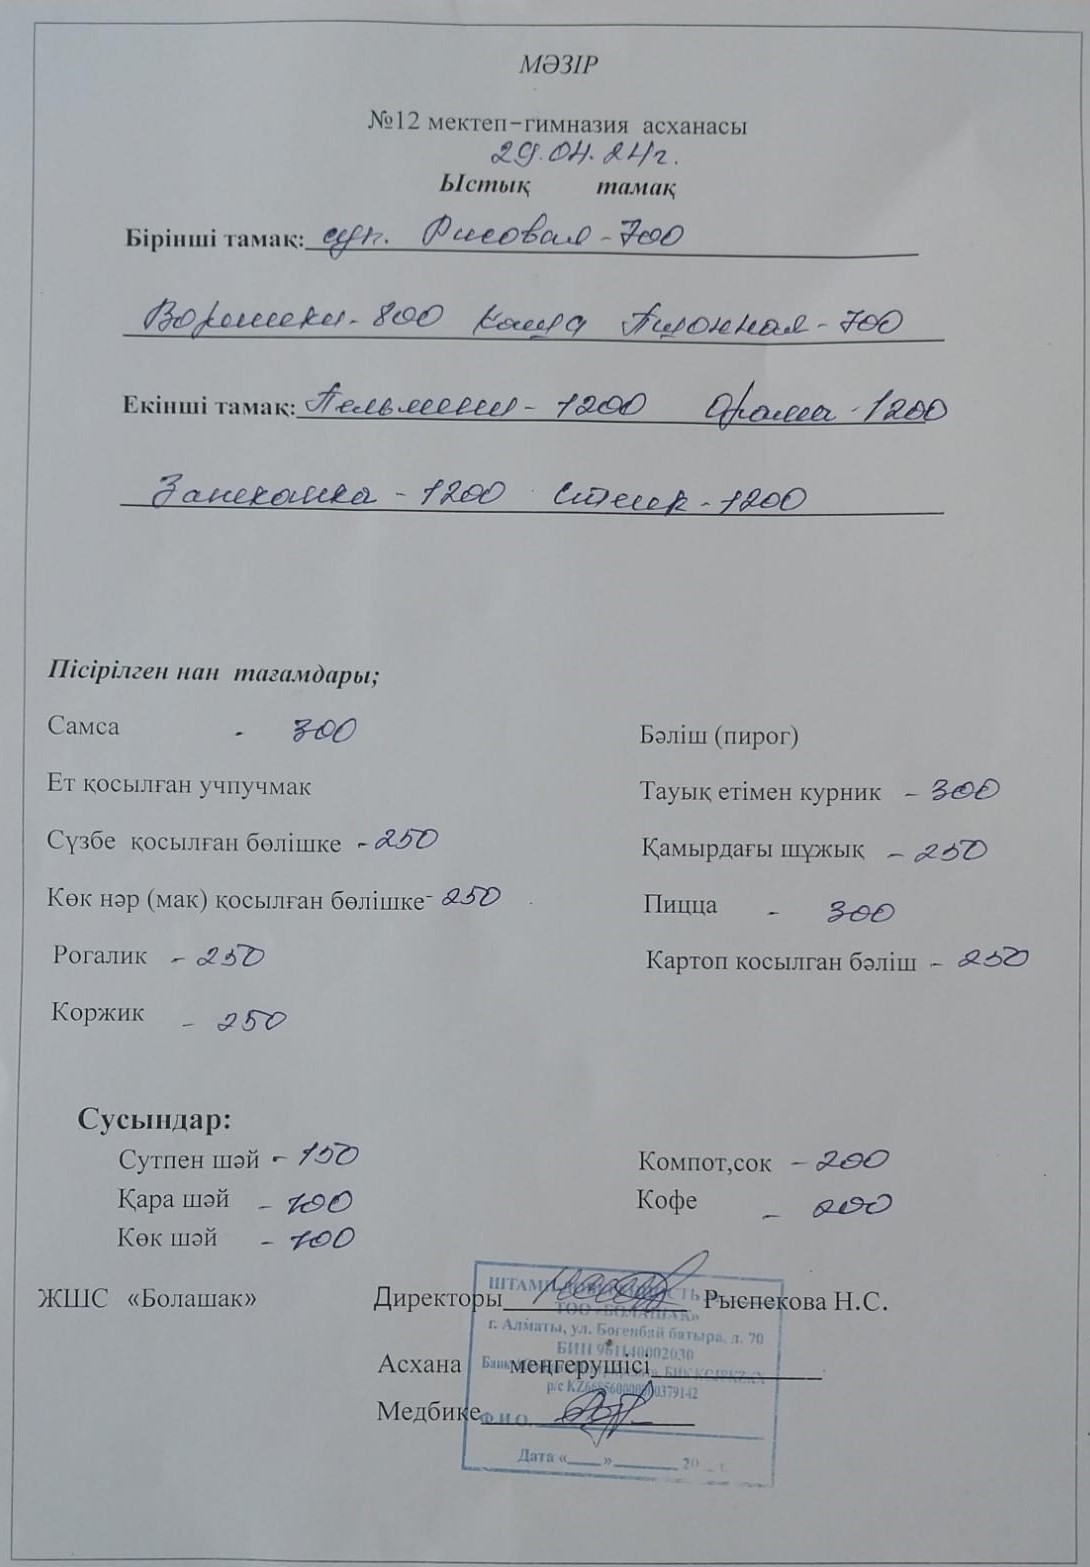 МӘЗІР
№12 мектеп-гимназия асханасы
29.04.24г.
Ыстық тамақ
Бірінші тамақ: суп. Рисовая - 700
Ворошеки - 800 Каша Пшонная - 700
Екінші тамақ: Пельмени - 1200 Орама - 1200
Запеканка - 1200 Стейк - 1200
Пісірілген нан тағамдары;
Самса - 300
Бәліш (пирог)
Ет қосылған учпучмак
Тауық етімен курник - 300
Сүзбе қосылған бөлішке - 250
Қамырдағы шұжық - 250
Көк нәр (мак) қосылған бөлішке - 250
Пицца - 300
Рогалик - 250
Картоп косылган бәліш - 250
Коржик - 250
Сусындар:
Сутпен шәй - 150
Компот,сок - 200
Қара шәй - 100
Кофе - 200
Көк шәй - 100
ЖШС «Болашак» Директоры Рыспекова Н.С.
ШТАМП
ТОО «БОЛАШАК»
г. Алматы, ул. Богенбай батыра, д. 70
БИН 961140002030
Асхана меңгерушісі
р/с
Медбике
Ф.И.О.
Дата «___»________ 20